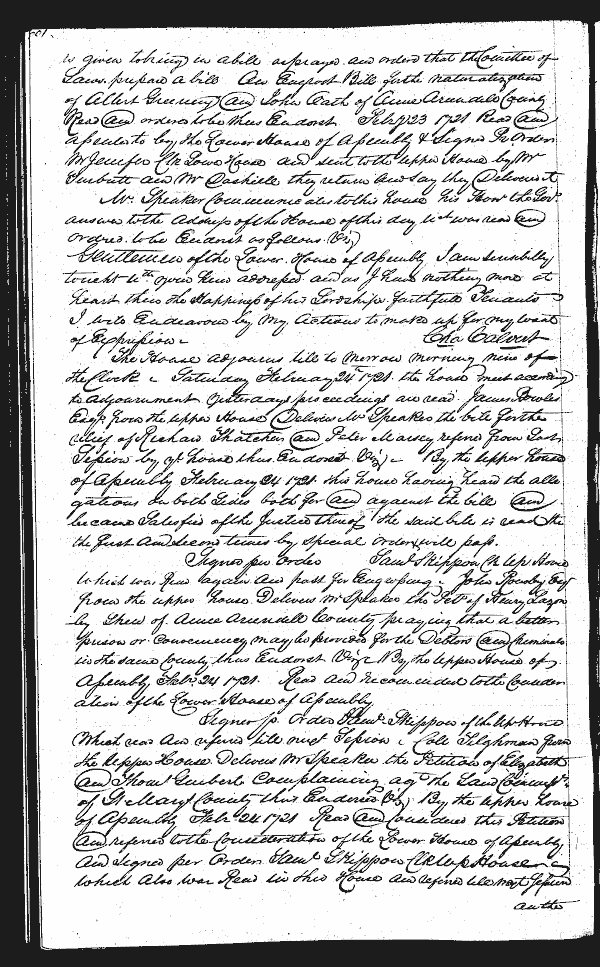 is given to bring in a bill as prayed and orderd that the Comittee of
Laws prepare a bill An Engrost Bill for the naturalization
of Albert Greening and John of Anne Arundell County
Read and ordered to be thus Endorst Feb:ry 23 1721 Read and
assented to by the Lower House of Assembly & Signd P Order
M Jenifer Clk Lowr House and sent to the upper House by Mr
and Mr Dashiele they return and say they Deliverd it
Mr Speaker Communicates to this house his Honr the Govrs
answer to the Address of the House of this day wch was read and
ordred to be Endorst as follows Viz
Gentlemen of the Lower House of Assembly I am sensibly
toucht wth your kind address and as I have nothing more at
heart then the Happiness of his Lordships faithfull Tenants
I will Endeavour by my Actions to make up for my want
of Expression Cha Calvert
The House adjourns till to Morrow morning nine of
the Clock Saturday February 24th 1721 the house meet according
to adjournment Yesterdays proceedings are read James Bowles
Esqr from the upper House Delivers Mr Speaker the bill for the
relief of Richard Thatcher and Peter Massey referd from last
Session by yt house thus Endorst Viz By the upper house
of Assembly February 24 1721 this house having heard the alle
gations on both sides both for and against the bill and
became Satesfied of the Justice thereof the said bill is read the
the first and second times by special order & will pass
Signed per Order Saml Skippon Clk Up House
Which was Read again and past for Engrossing John Esqr
from the upper house Delivers Mr Speaker the Petn of Henry
by Sher of Anne Arundel County praying that a better
prison or Conveniency may be provided for the Debtors and Criminals
in the same County thus Endorst Vizt By the Upper House of
Assembly Febr 24 1721 Read and recomended to the Consider
ation of the Lower House of Assembly
Signed p Order Saml Skippon of the Up House
Which read and referrd till next Session Coll Tilghman from
the upper House Delivers Mr Speaker the Petition of Elizabeth
and Thoms Guibert Complaining agt the Land
of St Marys County thus Endorsed Viz By the upper house
of Assembly Febr 24 1721 Read and Considered this Petition
and referred to the Consideration of the Lower House of Assembly
and signed per Order Saml Skippon Clk up House
which also was Read in this House and referred till next Session